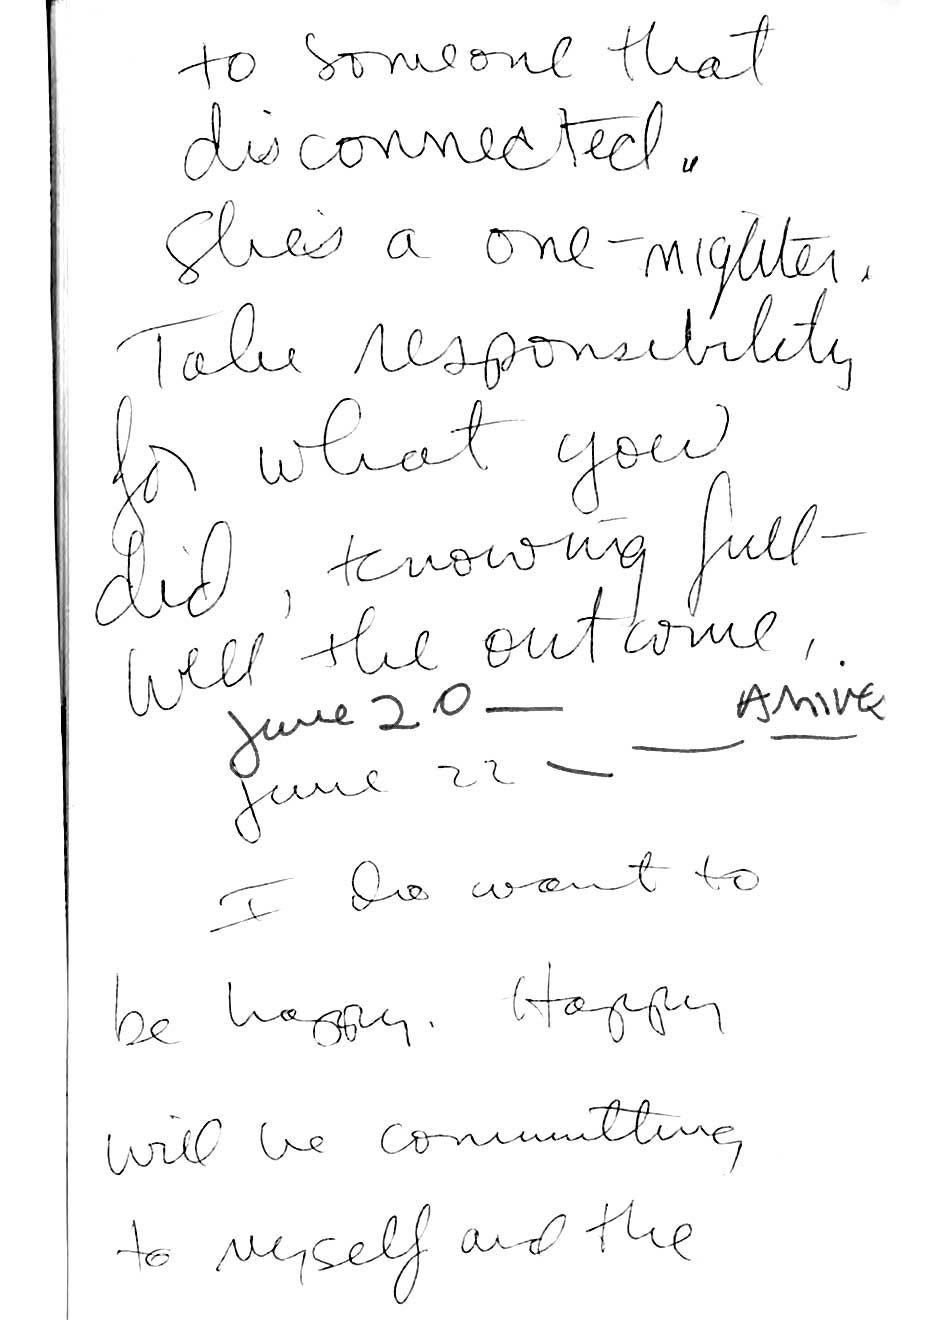 to someone that
disconnected."
She's a one-nighter.
Take responsibility
for what you
did, knowing full-
well the outcome.
June 20 — Arrive
June 22 —
I do want to
be happy. Happy
will be committing
to myself and the